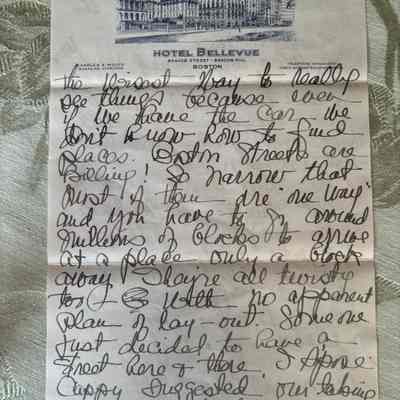 HOTEL BELLEVUE
BEACON STREET - BEACON HILL
BOSTON
the nicest way to really
see things because even
if we have the car we
don't know how to find
places. Boston Streets are
Baeing! So narrow that
most of them are "one way"
and you have to go around
millions of blocks to arrive
at a place only a block
away. They're all twisty
too with no apparent
plan of lay-out. Someone
just decided to have a
street here & there, I spose.
Cappy suggested our taking